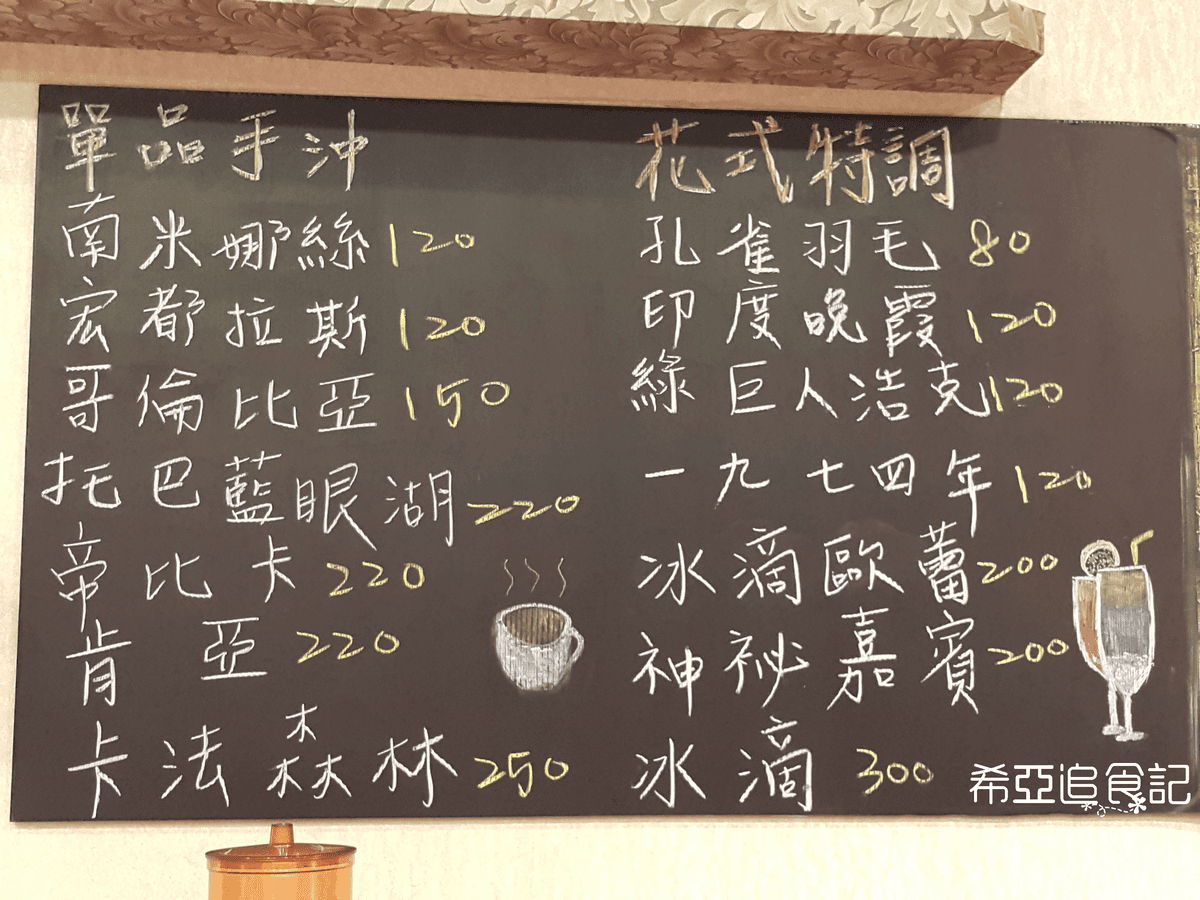 單品手沖
南米娜絲 120
宏都拉斯 120
哥倫比亞 150
托巴藍眼湖 220
帝比卡 220
肯亞 220
卡法森林 250
花式特調
孔雀羽毛 80
印度晚霞 120
綠巨人浩克 120
一九七四年 120
冰滴歐蕾 200
神祕嘉賓 200
冰滴 300
希亞追食記